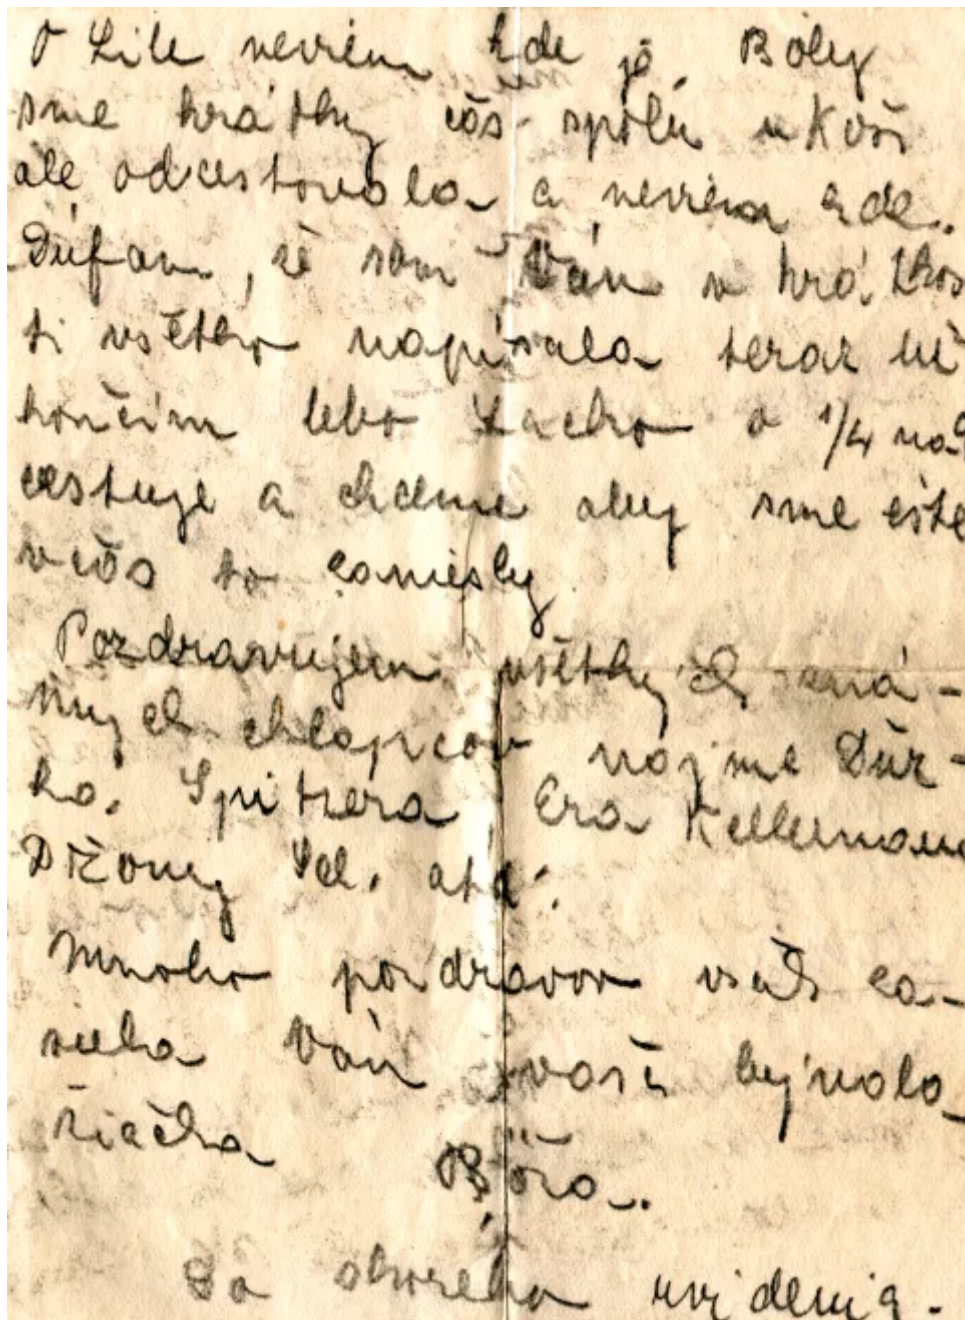 O Lile neviem kde je. Boly
sme krátky čas spolu v Koši
ale odcestovala a neviem kde.
Dúfam, že som Vám v krátkos
ti všetko napísala teraz už
končím lebo Lacko o 1/4 na
cestuje a chceme aby sme ešte
včas to zaniesly
Pozdravujem všetkých zná-
mych chlapcov najme Ďur-
ka. Spitzera, Era Kellemann
Džony atď.
Mnoho pozdravov však za-
siela Vám vaša bývala
žiačka
Böža.
Do skorého uvidenia.